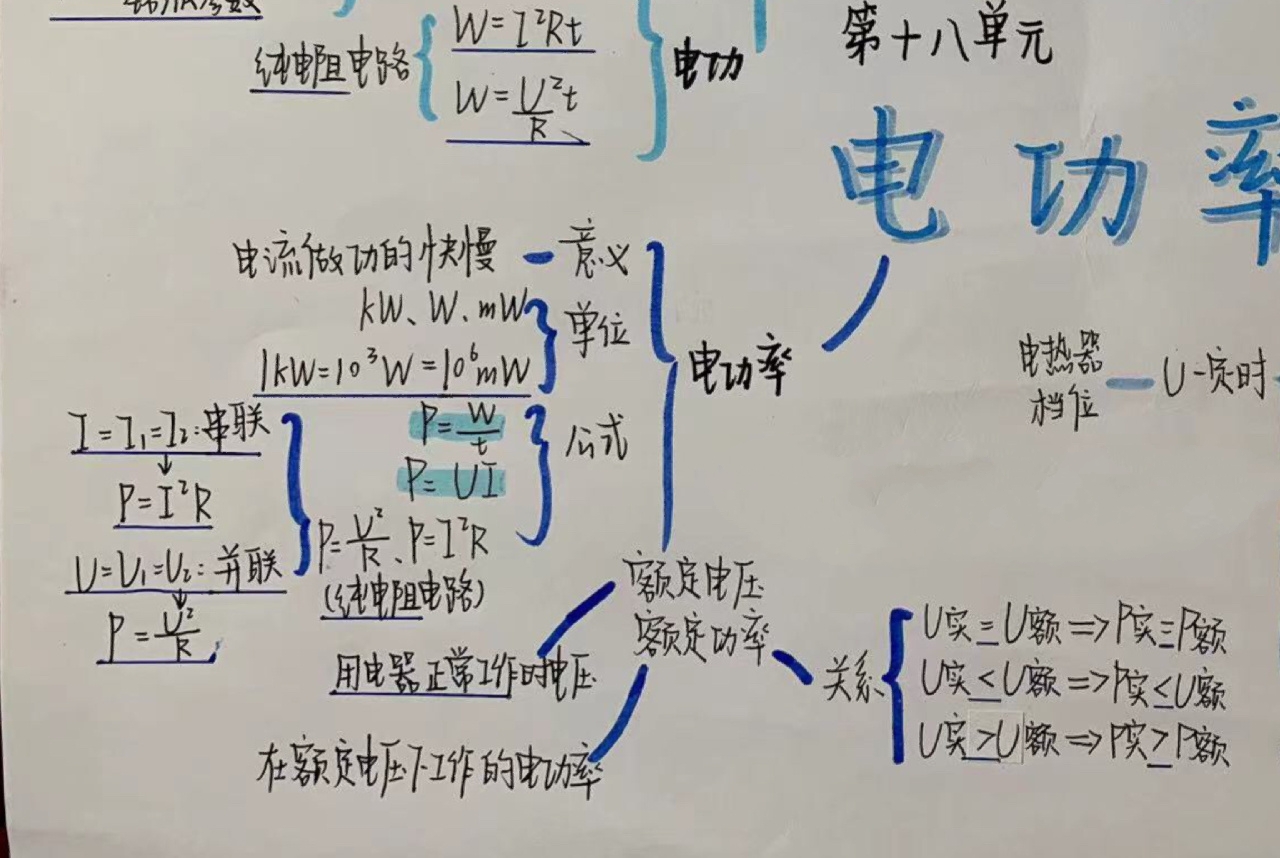 W=I²Rt
纯电阻电路
W=U²t/R
电功
第十八单元
电功率
电流做功的快慢 - 意义
kW、W、mW
单位
1kW=10³W=10⁶mW
电功率
电热器
档位
U一定时
I=I₁=I₂:串联
P=W/t
公式
P=UI
P=I²R
P=U²/R、P=I²R
(纯电阻电路)
U=U₁=U₂:并联
P=U²/R
额定电压
额定功率
用电器正常工作时电压
在额定电压下工作的电功率
关系
U实=U额=>P实=P额
U实<U额=>P实<U额
U实>U额=>P实>P额